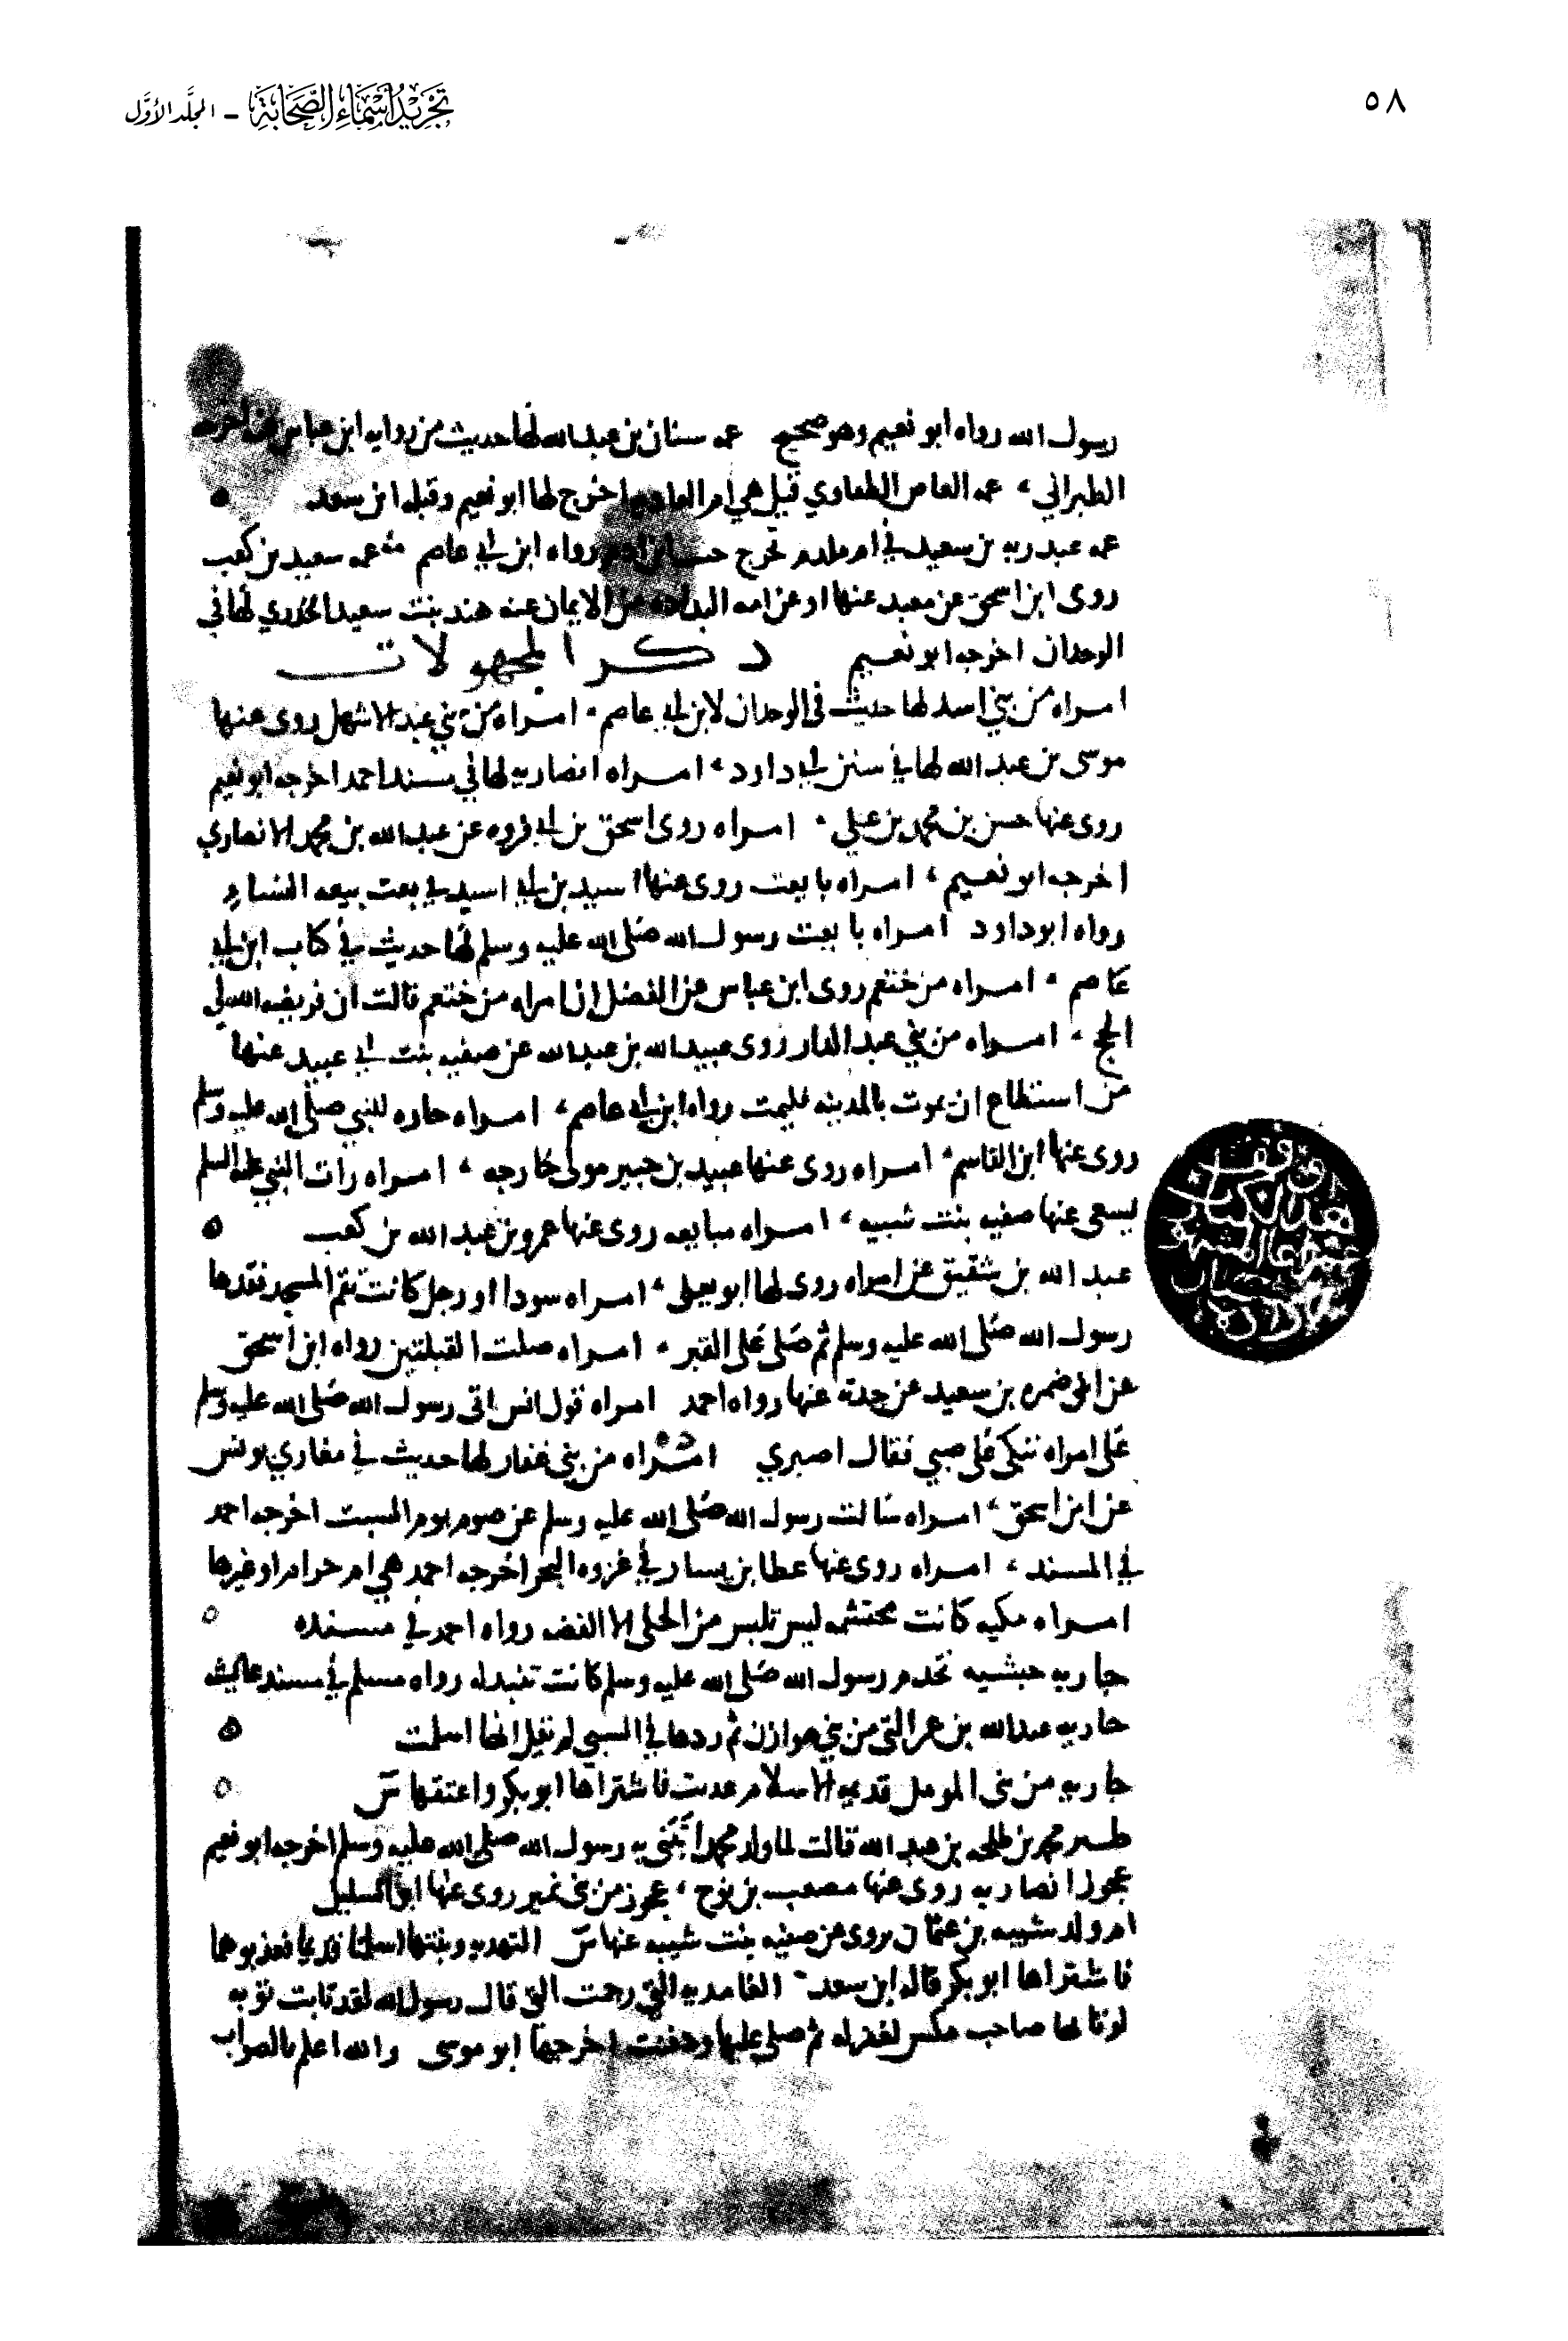 ٥٨
تجريد أسماء الصحابة - المجلد الأول
رسول الله رواه ابو نعيم وهو صحيح عمه سنان بن عبد الله لها حديث من روايه ابن عباس
الطبراني عمه العاص الطفاوي قيل هي ام اخرج لها ابو نعيم وقبله ابن سعد
عمه عبد ربه بن سعيد في ام ملدم تخرج رواه ابن ابي عاصم عمه سعيد بن كعب
روى ابن اسحق عن معبد عنها او عن امه البذاذه من الايمان عنه هند بنت سعيد الخدري لها في
الوحدان اخرجه ابو نعيم ذكر المجهولات
امراه من بني اسد لها حديث في الوحدان لابن ابي عاصم امراه من بني عبد الاشهل روى عنها
موسى بن عبد الله لها في سنن ابي داود امراه انصاريه لها في مسند احمد اخرجه ابو نعيم
روى عنها حسن بن محمد بن علي امراه روى اسحق بن ابي فروه عن عبد الله بن محمد الانصاري
اخرجه ابو نعيم امراه بايعت روى عنها اسيد بن ابي اسيد في بعت بيعه النساء
رواه ابو داود امراه بايعت رسول الله صلى الله عليه وسلم لها حديث في كتاب ابن ابي
عاصم امراه من خثعم روى ابن عباس عن الفضل ان امراه من خثعم قالت ان فريضه الله في
الحج امراه من بني عبد الدار روى عبيد الله بن عبد الله عن صفيه بنت ابي عبيد عنها
من استطاع ان يموت بالمدينه فليمت رواه ابن ابي عاصم امراه جاره للنبي صلى الله عليه وسلم
روى عنها ابن القاسم امراه روى عنها عبيد بن جبير مولى خارجه امراه رات النبي عليه السلم
يسعى عنها صفيه بنت شيبه امراه مبايعه روى عنها عمرو بن عبد الله بن كعب
عبد الله بن شقيق عن امراه روى لها ابو يعلى امراه سودا او رجل كانت تقم المسجد ففقدها
رسول الله صلى الله عليه وسلم ثم صلى على القبر امراه صلت القبلتين رواه ابن اسحق
عن ضمره بن سعيد عن جدته عنها رواه احمد امراه قول انس اتى رسول الله صلى الله عليه وسلم
على امراه تبكي على صبي فقال اصبري امراه من بني غفار لها حديث في مغازي يونس
عن ابن اسحق امراه سالت رسول الله صلى الله عليه وسلم عن صوم يوم السبت اخرجه احمد
في المسند امراه روى عنها عطا بن يسار في غزوه البحر اخرجه احمد هي ام حرام او غيرها
امراه مكيه كانت محتشمه ليس تلبس من الحلى الا الفضه رواه احمد في مسنده
جاريه حبشيه تخدم رسول الله صلى الله عليه وسلم كانت تنبذ له رواه مسلم في مسند عائشه
جاريه عبد الله بن عمر التي من بني هوازن ثم ردها في السبي لم نقل انها اسلمت
جاريه من بني المومل قديمه الاسلام عذبت فاشتراها ابو بكر واعتقها س
ظير محمد بن طلحه بن عبيد الله قالت لما ولد محمد اتيني به رسول الله صلى الله عليه وسلم اخرجه ابو نعيم
عجوز انصاريه روى عنها مصعب بن نوح عجوز من بني نمير روى عنها ابو السليل
ام ولد شيبه بن عثمان يروى عن صفيه بنت شيبه عنها س النهديه وبنتها اسلمتا قديما فعذبوهما
فاشتراها ابو بكر قاله ابن سعد الغامديه التي رجمت التي قال رسول الله لقد تابت توبه
لو تابها صاحب مكس لغفر له ثم صلى عليها ودفنت اخرجها ابو موسى والله اعلم بالصواب